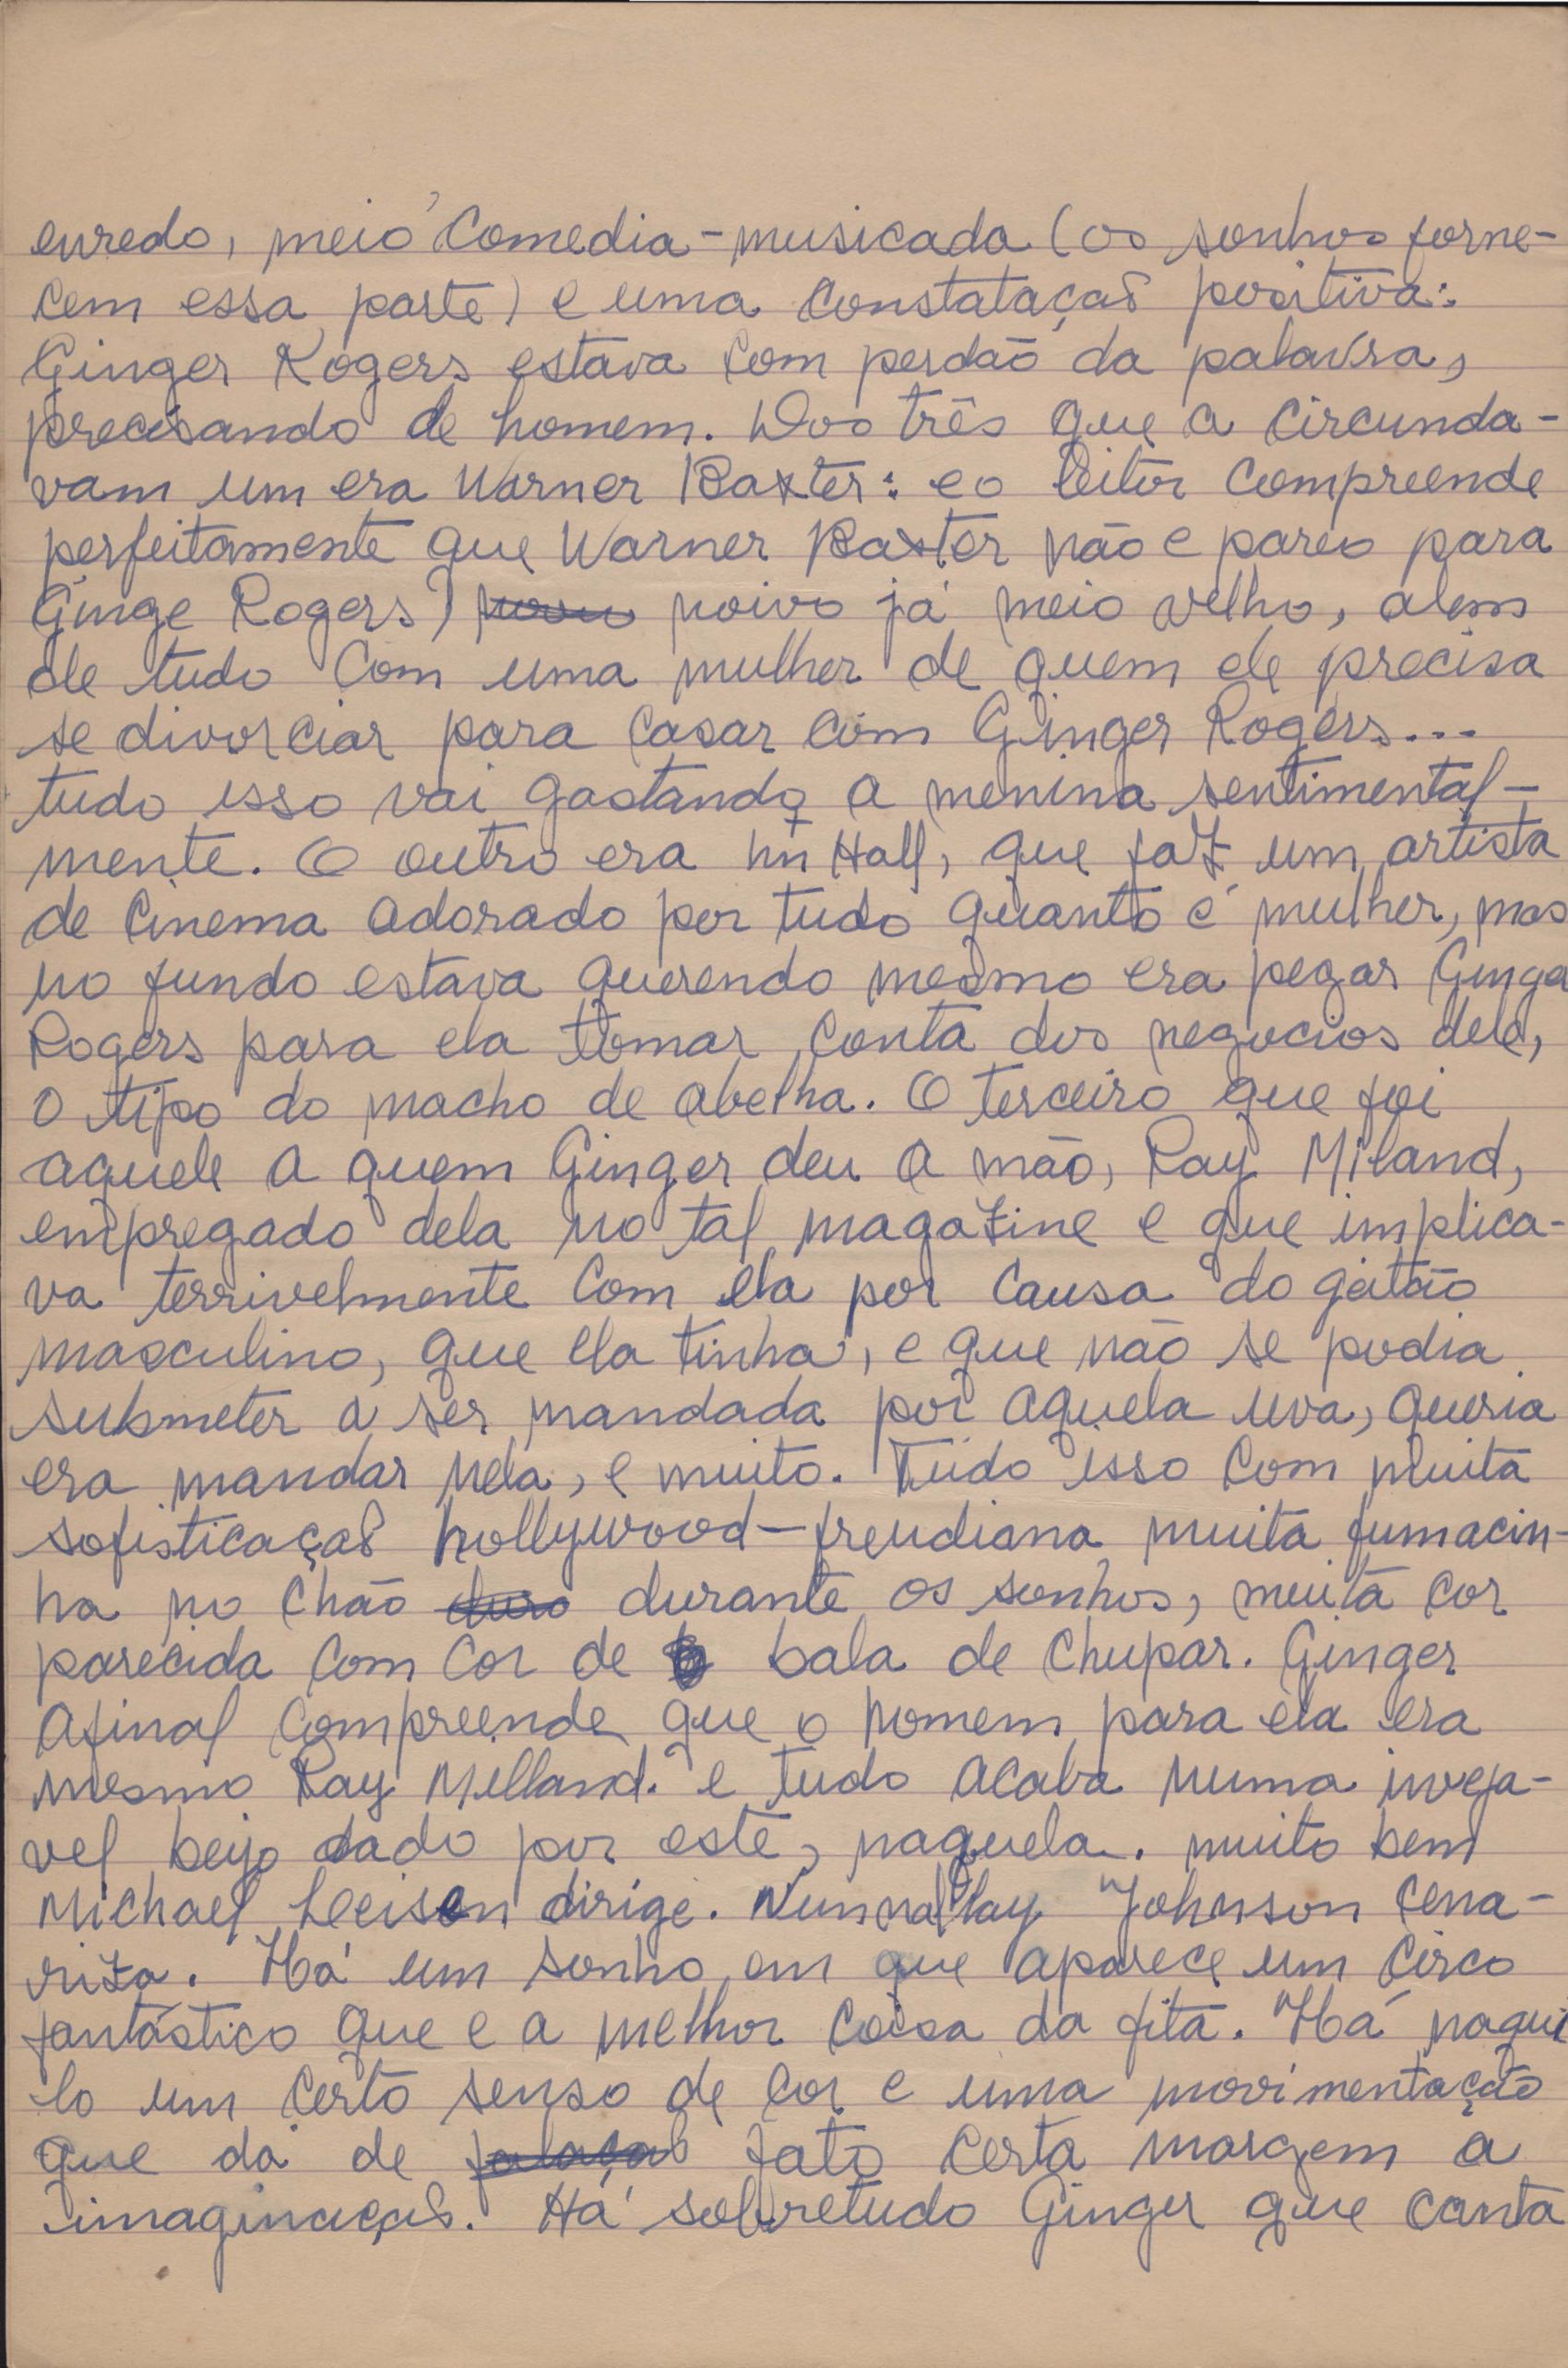 enredo, meio comedia-musicada (os sonhos forne-
cem essa parte) e uma constatação positiva:
Ginger Rogers estava com perdão da palavra,
precisando de homem. Dos três que a circunda-
vam um era Warner Baxter: e o leitor compreende
perfeitamente que Warner Baxter não e pareo para
Ginge Rogers) noivo já meio velho, alem
de tudo com uma mulher de quem ele precisa
se divorciar para casar com Ginger Rogers...
tudo isso vai gastando a menina sentimental-
mente. O outro era Hall, que faz um artista
de cinema adorado por tudo quanto é mulher, mas
no fundo estava querendo mesmo era pegar Ginger
Rogers para ela tomar conta dos negocios dele,
o tipo do macho de abelha. O terceiro que foi
aquele a quem Ginger deu a mão, Ray Miland,
empregado dela no tal magazine e que implica-
va terrivelmente com ela por causa do geitão
masculino, que ela tinha, e que não se podia
submeter a ser mandada por aquela uva, queria
era mandar nela, e muito. Tudo isso com muita
sofisticação hollywood-freudiana muita fumacin-
ha no chão duro durante os sonhos, muita cor
parecida com cor de bala de chupar. Ginger
afinal compreende que o homem para ela era
mesmo Ray Melland. e tudo acaba numa inveja-
vel beijo dado por este, naquela. muito bem
Michael Leisen dirige. Nunnallay Johnson cena-
riza. Há um sonho em que aparece um circo
fantástico que e a melhor coisa da fita. Há naqui
lo um certo senso de cor e uma movimentação
que dá de fato certa margem a
imaginação. Há sobretudo Ginger que canta